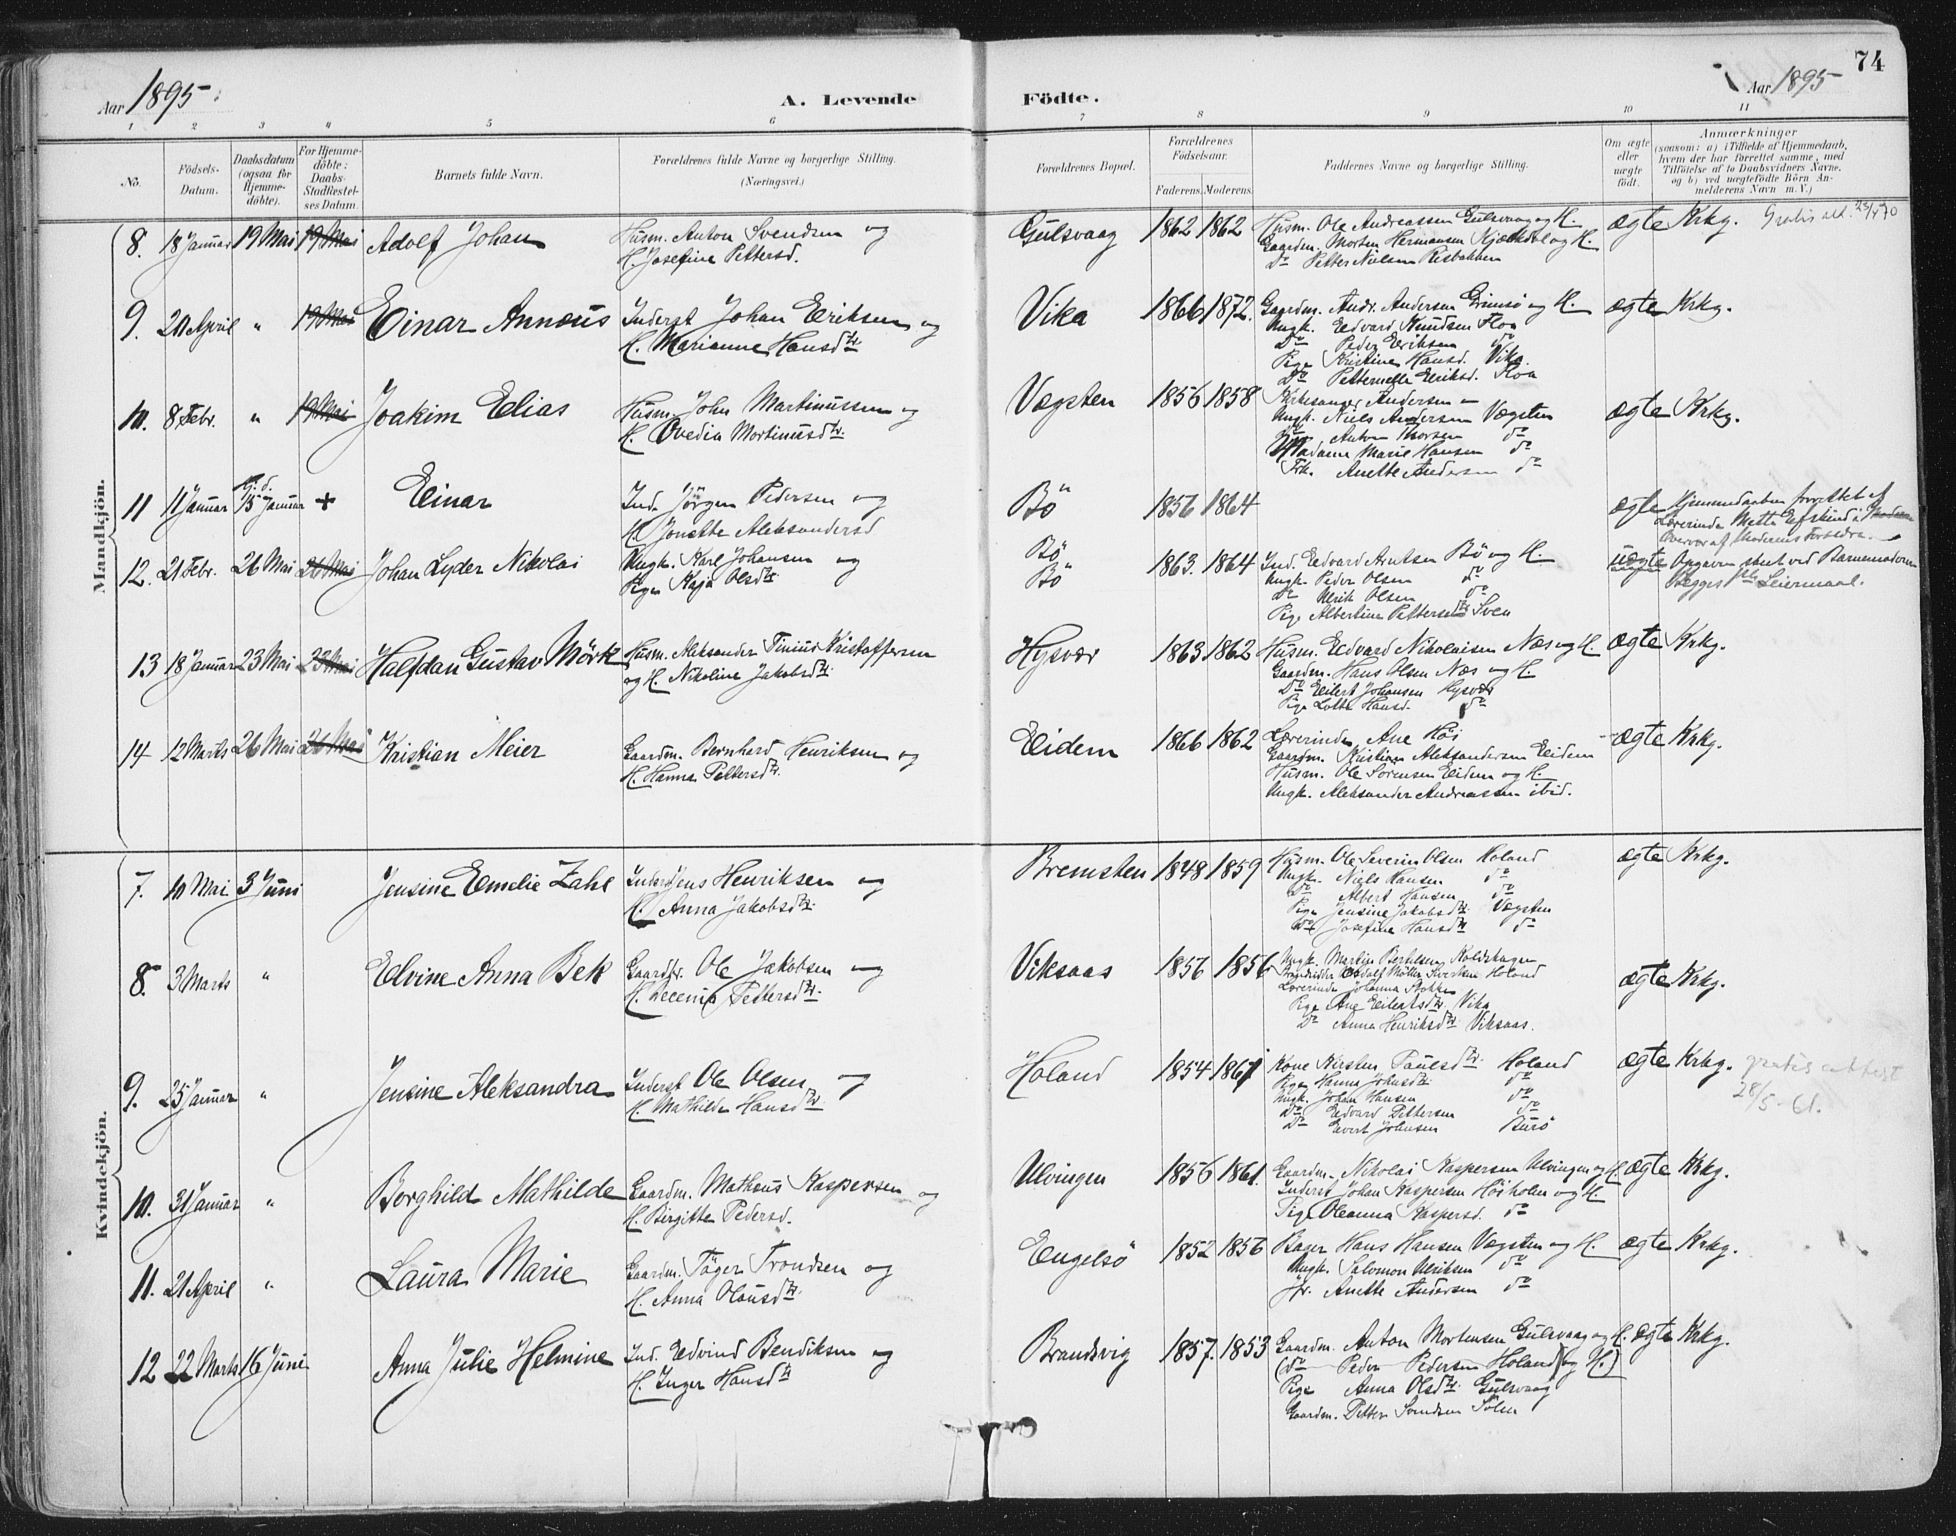 Aar 1895.
A. Levende
Födte.
Aar 1895
74
1 2 3 4 5 6 7 8 9 10 11
No.
Födsels-Datum.
Daabsdatum (ogsaa for Hjemme-döbte).
For Hjemme-döbte: Daabs-Stadfæstel-ses Datum.
Barnets fulde Navn.
Forældrenes fulde Navne og borgerlige Stilling. (Næringsvei.)
Forældrenes Bopæl.
Forældrenes Födselsaar.
Faderens. Moderens.
Faddernes Navne og borgerlige Stilling.
Om ægte eller uægte födt.
Anmærkninger (saasom: a) i Tilfælde af Hjemmedaab, hvem der har forrettet samme, med Tilföielse af to Daabsvidners Navne, og b) ved uægtefödte Börn An-melderens Navn m. V.)
Mandkjön.
8. 18 Januar 19 Mai 19 Mai Adolf Johan
Husm. Anton Svendsen og
H. Josefine Pettersd.
Gulsvaag 1862 1862
Husm. Ole Andreassen Gulsvaag og H.
Gaardm. Morten Hermansen og H.
Do Petter Nielsen Risbakken
ægte Krkg. Gratis att.
9. 20 April " 19 Mai Einar Annæus
Inderst Johan Eriksen og
H. Marianne Hansdtr.
Vika 1866 1872.
Gaardm. Andr. Andersen Grimsö og H.
Ungk. Edvard Knudsen Floa
Do Peder Eriksen do
Pige Kristine Hansd. Vika.
Do Petternelle Eriksd. Floa
ægte Krkg.
10. 8 Febr. " 19 Mai Joakim Elias
Husm. John Martinussen og
H. Ovedia Mortinusdtr.
Vægsten 1856 1858
Kirkesanger Andersen
Ungk. Niels Andersen Vægsten
Anton Thorsen do
Madame Marie Hansen do
Frk. Anette Andersen do
ægte Krkg.
11 11 Januar H. d. 15 Januar + Einar
Ind. Jörgen Pedersen og
H. Jonette Aleksandersd
Bö 1856 1864
ægte Hjemmedaaben forrettet af
Lærerinde Mette
Overvær af Moderens Forældre.
12. 21 Febr. 26 Mai 26 Mai Johan Lyder Nikolai
Ungk. Karl Johansen og
Pige Kaja Olsdtr.
Bö
Bö
1863. 1864
Ind. Edvard Arntsen Bö og H.
Ungk. Peder Olsen do
Do Ulrik Olsen do
Pige Albertine Pettersdtr. Sven
uægte Opgaven skeet ved Barnemoderen
Begges Leiermaal.
13 18 Januar 23 Mai 23 Mai Halfdan Gustav Mörk
Husm. Aleksander Tinius Kristoffersen
og H. Nikoline Jakobsdtr.
Hysvær 1863 1862
Husm. Edvard Nikolaisen Næs og H.
Gaardm. Hans Olsen Næs og H.
Do Eilert Johansen Hysvær
Pige Lotte Hansd. do
ægte Krkg.
14 12 Marts 26 Mai 26 Mai Kristian Meier
Gaardm. Bernhard Henriksen og
H. Hanna Pettersdtr.
Eidem 1866 1862
Lærerinde Ane Höi
Gaardm. Kristian Aleksandersen Eidem
Husm. Ole Sörensen Eidem og H.
Ungk. Aleksander Andreassen ibid.
ægte Krkg.
Kvindekjön.
7. 10 Mai 3 Juni Jensine Emelie Zahl
Inderst Jens Henriksen og
H. Anna Jakobsdtr.
Bremsten 1848 1859
Husm. Ole Severin Olsen Holand
Ungk. Niels Hansen do
Do Albert Hansen do
Pige Jensine Jakobsdtr. Vægsten
Do Josefine Hansdtr do
ægte Krkg.
8. 3 Marts " Elvine Anna Bek
Gaardbr. Ole Jakobsen og
H. Pettersdtr.
Viksaas 1856 1856
Ungk. Martin Bertelsen
Möller Holand
Lærerinde Johanna Stokke
Pige Ane Eilertsdtr. Vika
Do Anna Henriksdtr. Viksaas.
ægte Krkg.
9. 25 Januar " Jensine Aleksandra
Inderst Ole Olsen og
H. Mathilde Hansdtr
Holand 1854 1861
Kone Kirsten Paulsdtr. Holand
Pige Hanna Johnsdtr. do
Ungk. Johan Hansen do
Do Edvard Pettersen do
Do Evert Johansen Burö
ægte Krkg. gratis attest
28/5-61.
10. 31 Januar " Borghild Mathilde
Gaardm. Matheus Kaspersen og
H. Birgitte Pedersd.
Ulvingen 1856 1861.
Gaardm. Nikolai Kaspersen Ulvingen og H.
Inderst Johan Kaspersen Höiholm og H.
Pige Oleanna Kaspersd. do
ægte Krkg.
11. 21 April " Laura Marie
Gaardm. Töger Trondsen og
H. Anna Olausdtr.
Engelsö 1852 1856
Bager Hans Hansen Vægsten og H.
Ungk. Salomon Ulriksen do
Anette Andersen do
ægte Krkg.
12 22 Marts 16 Juni Anna Julie Helmine
Ind. Edvind Bendiksen og
H. Inger Hansdtr
Brandsvig 1857. 1853
Gaardm. Anton Mortensen Gulsvaag og H.
(do Peder Pedersen Holand (og H.)
Pige Anna Olsdtr. Gulsvaag
Gaardm. Petter Svendsen
ægte Krkg.